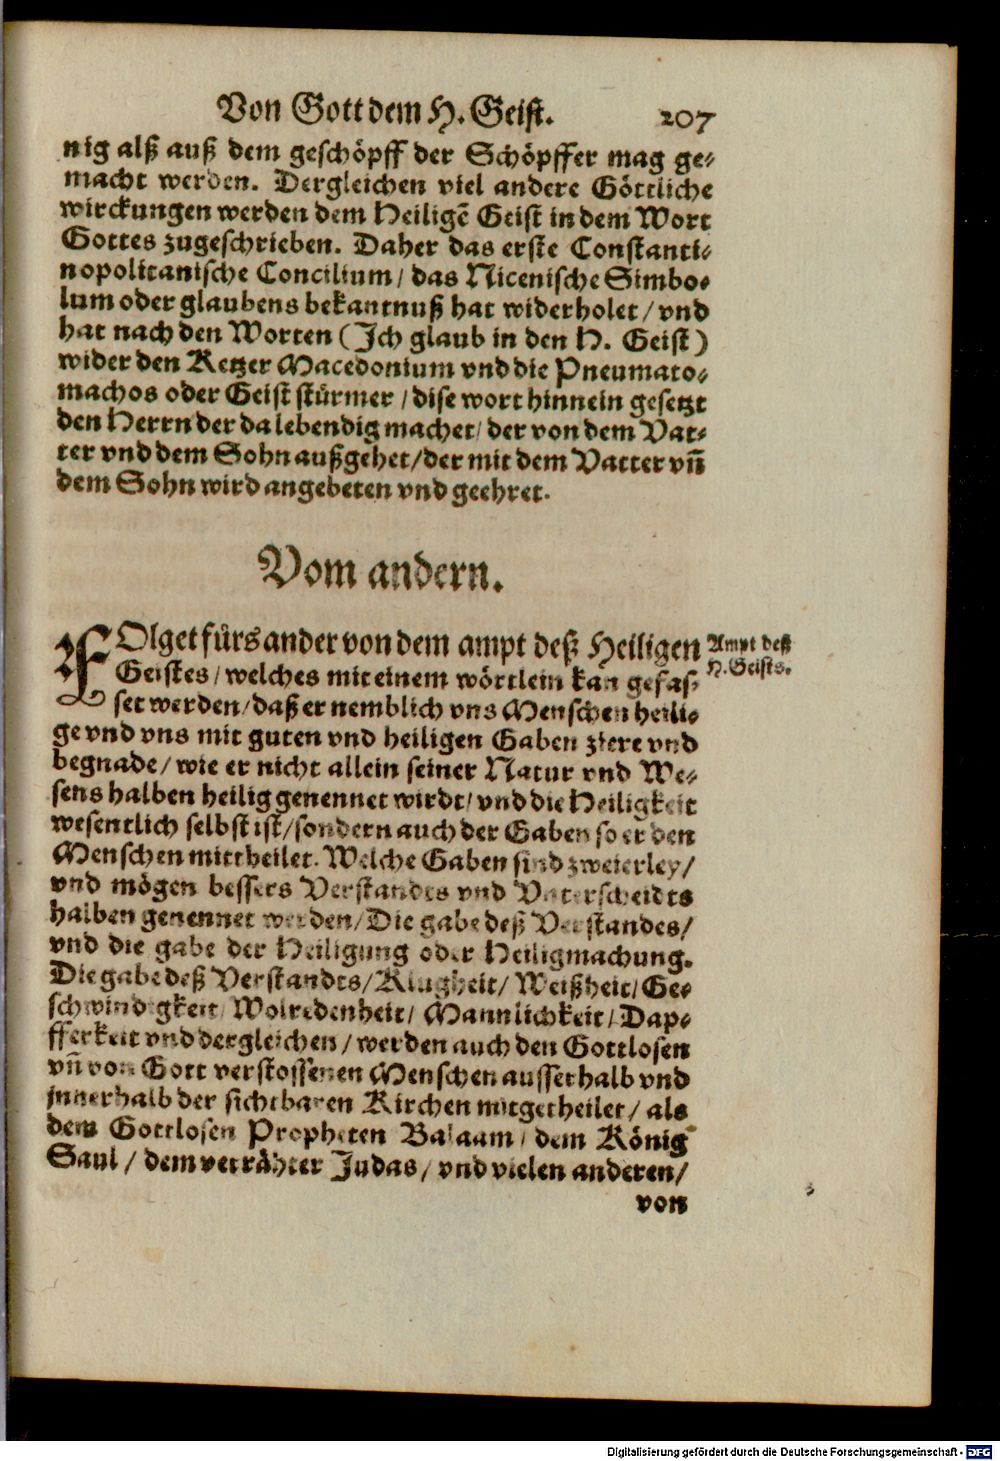 Von Gott dem H. Geist. 207
nig alß auß dem geschöpff der Schöpffer mag ge-
macht werden. Dergleichen viel andere Göttliche
wirckungen werden dem Heiligẽ Geist in dem Wort
Gottes zugeschrieben. Daher das erste Constanti-
nopolitanische Concilium / das Nicenische Simbo-
lum oder glaubens bekantnuß hat widerholet / vnd
hat nach den Worten (Ich glaub in den H. Geist)
wider den Ketzer Macedonium vnd die Pneumato-
machos oder Geist stürmer / dise wort hinnein gesetzt
den Herrn der da lebendig machet / der von dem Vat-
ter vnd dem Sohn außgehet / der mit dem Vatter vñ
dem Sohn wird angebeten vnd geehret.
Vom andern.
FOlget fürs ander von dem ampt deß Heiligen
Ampt deß
H. Geists.
Geistes / welches mit einem wörtlein kan gefas-
set werden / daß er nemblich vns Menschen heili-
ge vnd vns mit guten vnd heiligen Gaben ziere vnd
begnade / wie er nicht allein seiner Natur vnd We-
sens halben heilig genennet wirdt / vnd die Heiligkeit
wesentlich selbst ist / sondern auch der Gaben so er den
Menschen mittheilet. Welche Gaben sind zweierley /
vnd mögen bessers Verstandes vnd Vnterscheidts
halben genennet werden / Die gabe deß Verstandes /
vnd die gabe der Heiligung oder Heiligmachung.
Die gabe deß Verstandes / Klugheit / Weißheit / Ge-
schwindigkeit / Wolredenheit / Mannlichkeit / Dap-
fferkeit vnd dergleichen / werden auch den Gottlosen
vñ von Gott verstossenen Menschen ausserhalb vnd
innerhalb der sichtbaren Kirchen mitgetheilet / als
dem Gottlosen Propheten Balaam / dem König
Saul / dem verrähter Judas / vnd vielen anderen /
von
Digitalisierung gefördert durch die Deutsche Forschungsgemeinschaft - DFG